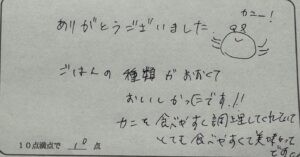 カニー!
ありがとうございました
ごはんの種類がおおくて
おいしかったです!!
カニを食べやすく調理してくれていて
とても食べやすくて美味かった
です。
10点満点で 10 点